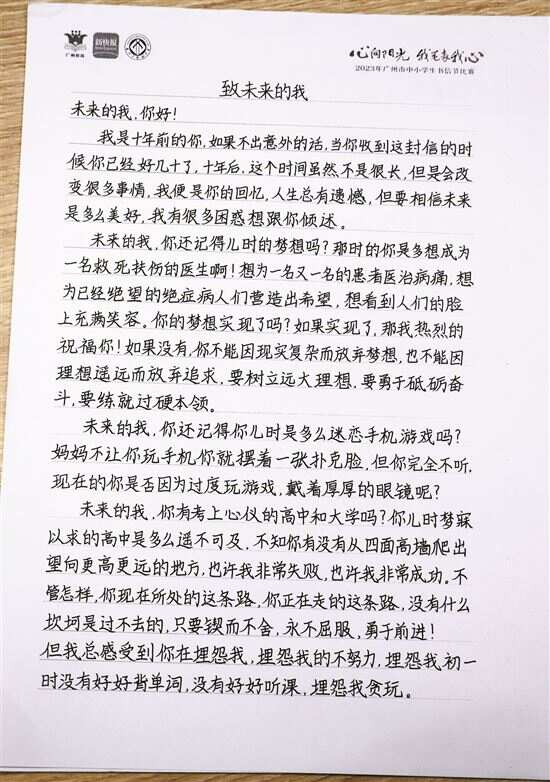 广州教育
新快报
心向阳光 我笔表我心
2023年广州市中小学生书信节比赛
致未来的我
未来的我,你好!
我是十年前的你,如果不出意外的话,当你收到这封信的时
候你已经好几十了,十年后,这个时间虽然不是很长,但是会改
变很多事情,我便是你的回忆,人生总有遗憾,但要相信未来
是多么美好,我有很多困惑想跟你倾述。
未来的我,你还记得儿时的梦想吗?那时的你是多想成为
一名救死扶伤的医生啊!想为一名又一名的患者医治病痛,想
为已经绝望的绝症病人们营造出希望,想看到人们的脸
上充满笑容。你的梦想实现了吗?如果实现了,那我热烈的
祝福你!如果没有,你不能因现实复杂而放弃梦想,也不能因
理想遥远而放弃追求,要树立远大理想,要勇于砥砺奋
斗,要练就过硬本领。
未来的我,你还记得你儿时是多么迷恋手机游戏吗?
妈妈不让你玩手机你就摆着一张扑克脸,但你完全不听,
现在的你是否因为过度玩游戏,戴着厚厚的眼镜呢?
未来的我,你有考上心仪的高中和大学吗?你儿时梦寐
以求的高中是多么遥不可及,不知你有没有从四面高墙爬出
望向更高更远的地方,也许我非常失败,也许我非常成功。不
管怎样,你现在所处的这条路,你正在走的这条路,没有什么
坎坷是过不去的,只要锲而不舍,永不屈服,勇于前进!
但我总感受到你在埋怨我,埋怨我的不努力,埋怨我初一
时没有好好背单词,没有好好听课,埋怨我贪玩。